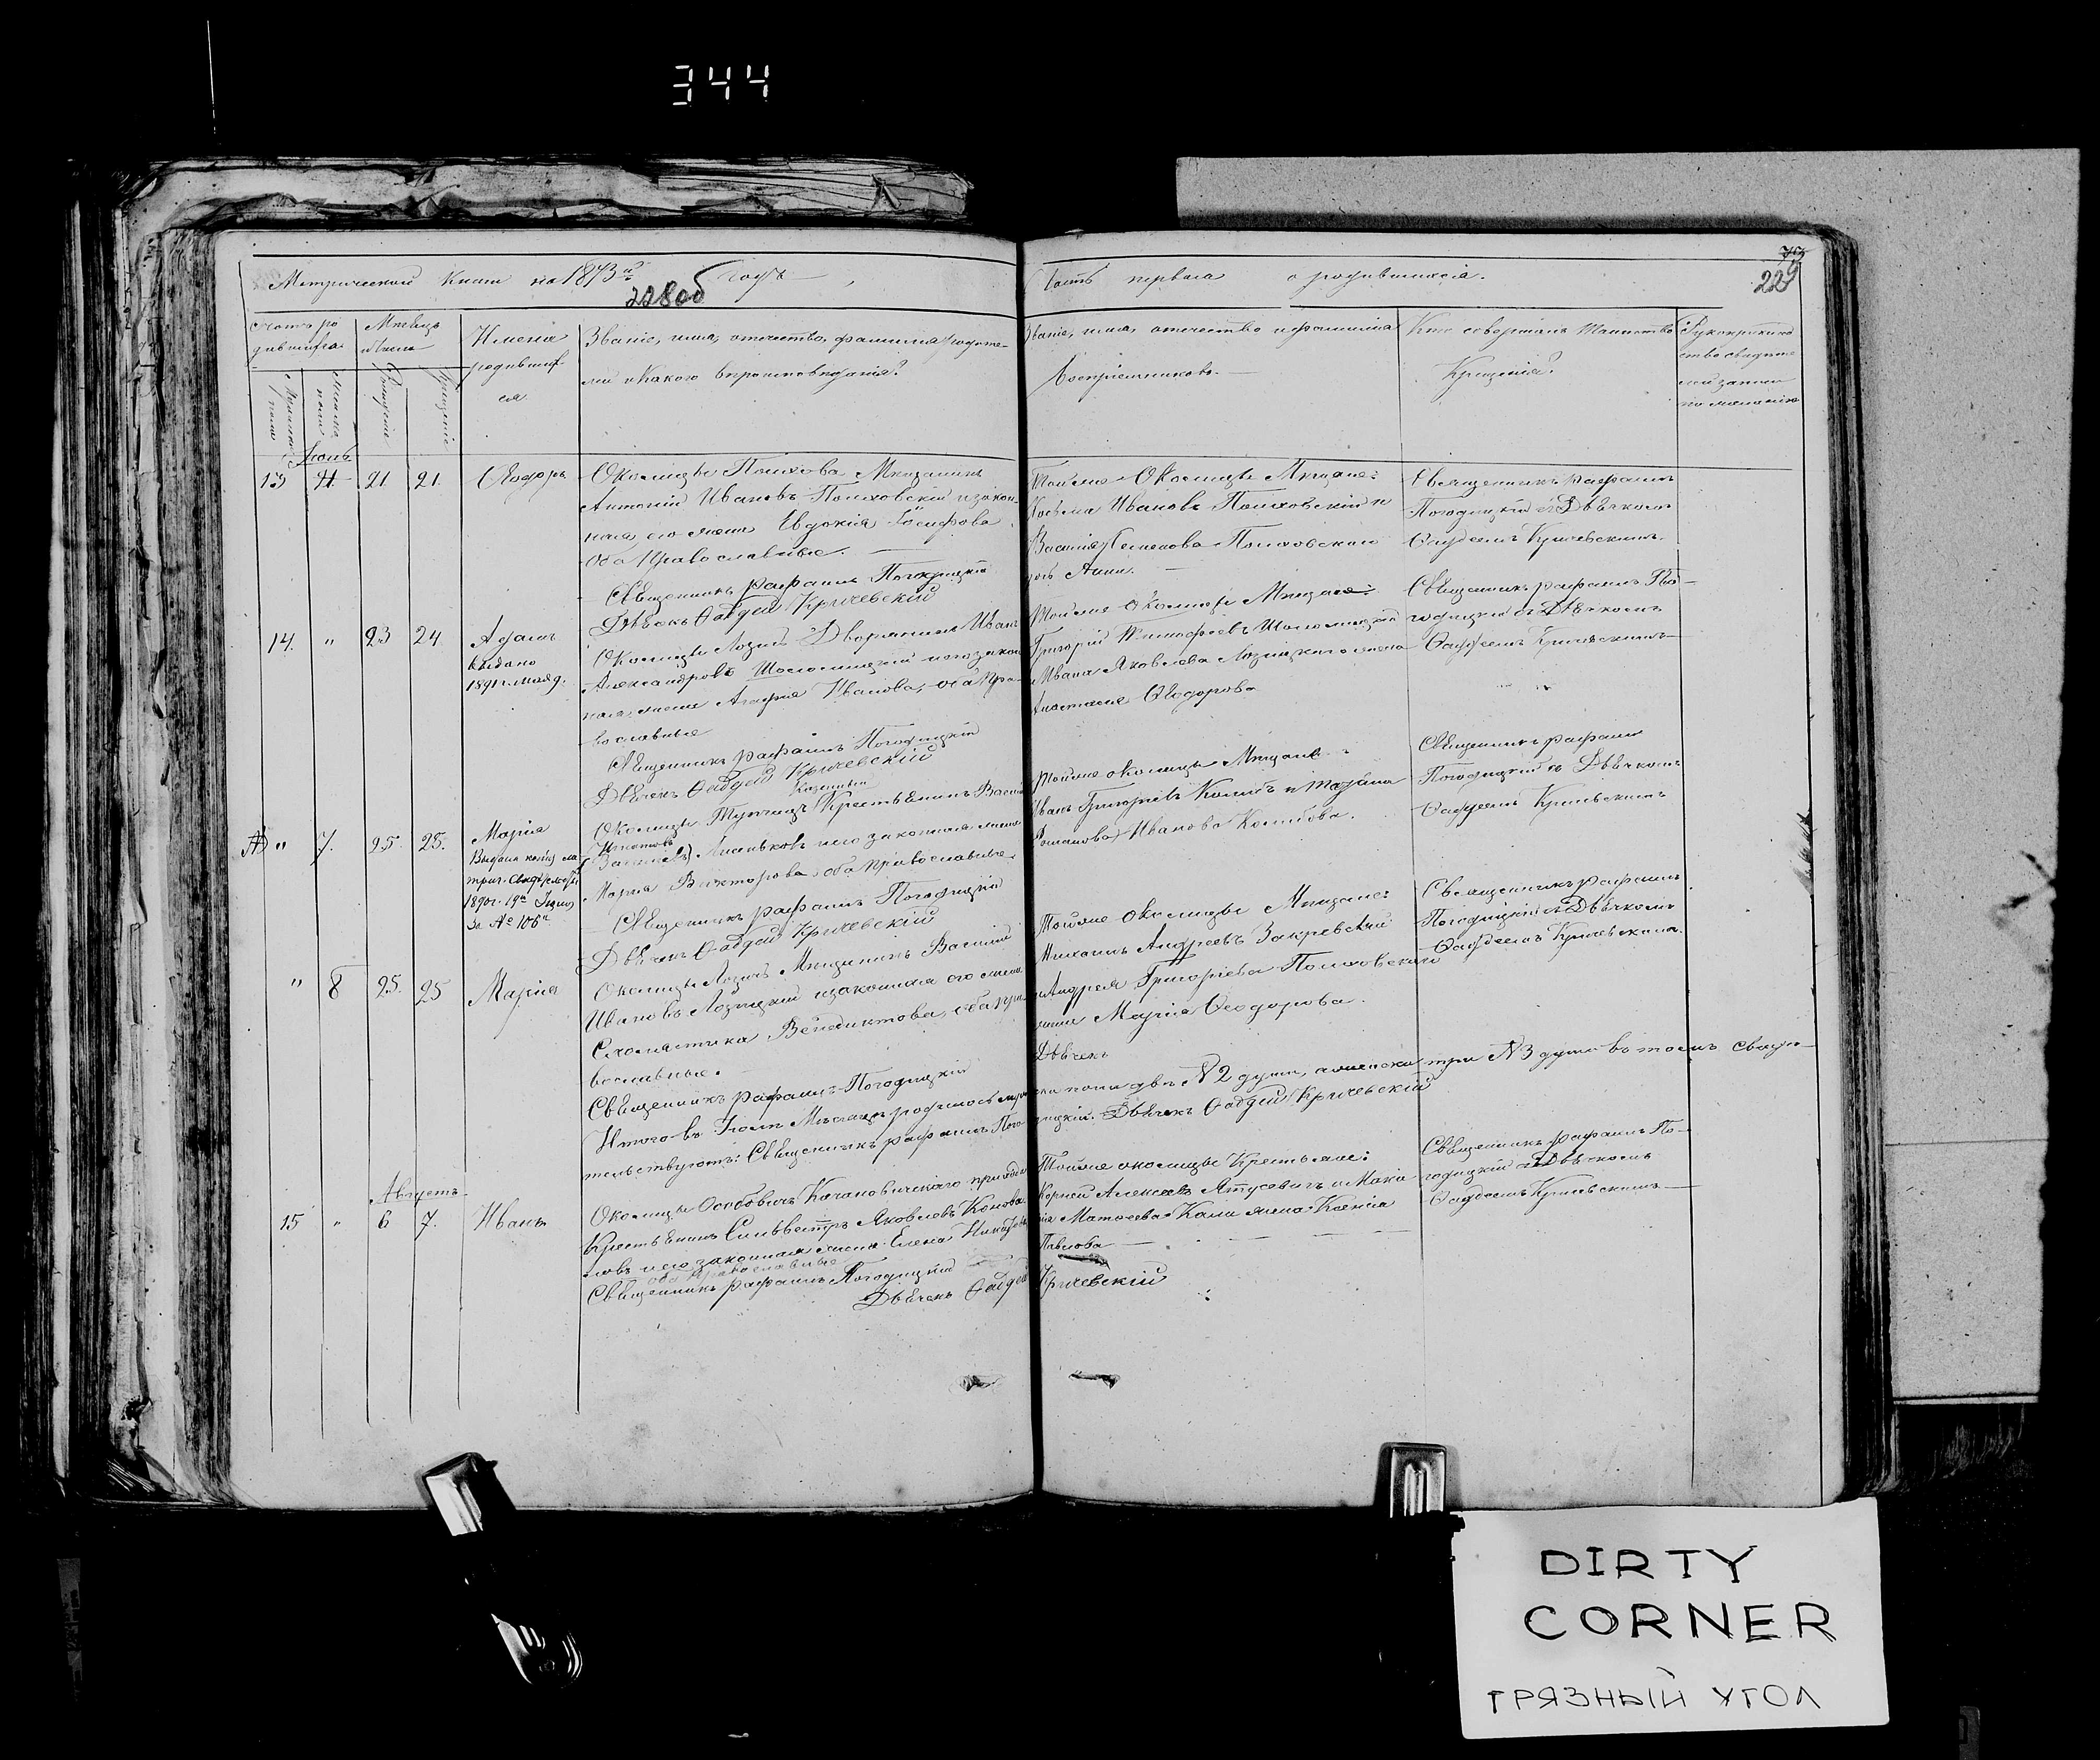 344
Метрической Книги на 1873й годъ
228об
Часть первая о родившихся.
229
Счетъ родившихся
Мѣсяцъ и число
Имена родившихся
Званіе, имя, отчество, фамилія родителей и Какого вѣроисповѣданія?
Званіе, имя, отчество и фамилія
Воспріемниковъ.
Кто совершалъ Таинство
Крещенія?
Іюль
13 21 21
Околицы Полхова Мѣщанинъ
Антоній Ивановъ Полховскій и закон-
ная его жена Евдокія Іосифова
Оба Православные.
Священникъ рафаилъ Погодицкій
Дьячекъ Фаддей Кричевскій
Тойже Околицы Мѣщане:
Косьма Ивановъ Полховскій и
Василія Семенова Полховскаго
дочь Анна.
Священникъ рафаилъ
Погодицкій съ Дьячкомъ
Фаддеемъ Кричевскимъ.
14. " 23 24 Адамъ
Выдано
1891 г. мая 9.
Околицы Лозичъ Дворянинъ Иванъ
Александровъ и его закон
ная жена Агафія Иванова, оба Пра-
вославные
Священникъ рафаилъ Погодицкій
Дьячекъ Фаддей Кричевскій
Тойже околицы Мѣщане:
Григорій Тимофеевъ
и Ивана Яковлева Лозицкаго жена
Анастасія Ѳеодорова
Священникъ рафаилъ По-
годицкій съ Дьячкомъ
Фаддеемъ Кричевскимъ
" 7. 25. 25. Марія
Выдана копія ме
трич. Свидѣтельства
1890 г. 19го
За № 106м
Казенный
Околицы Крестьянинъ Василій
Игнатовъ
и его законная жена
Марія Викторова, оба православные.
Священникъ рафаилъ Погодицкій
Дьячекъ Фаддей Кричевскій
Тойже околицы Мѣщане:
Иванъ Григорьевъ и
Романова Иванова
Священникъ рафаилъ
Погодицкій съ Дьячкомъ
Фаддеемъ Кричевскимъ
" 8 25. 25 Марія
Околицы Лозичъ Мѣщанинъ Василій
Ивановъ Лозицкій и законная его жена
Схоластика Венедиктова, оба пра-
вославные.
Священникъ рафаилъ Погодицкій
Дьячекъ
Тойже околицы Мѣщане:
Михаилъ Андреевъ Закревскій
и Андрея Григоріева Полховскаго
жена Марія Ѳеодорова.
Священникъ рафаилъ
Погодицкій съ Дьячкомъ
Фаддеемъ Кричевскимъ.
Итого въ Іюлѣ Мѣсяцѣ родилось мужеска пола двѣ № 2 души, а женска три № 3 души въ томъ свидѣ-
тельствуютъ: Священникъ рафаилъ Погодицкій. Дьячекъ Фаддей Кричевскій
Августъ
15 " 6 7. Иванъ
Околицы Особовичъ Качановичскаго прихода
Крестьянинъ Сильвестръ Яковлевъ Конова
ловъ и его законная жена Елена
оба Православные
Священникъ рафаилъ Погодицкій
Дьячекъ Фаддей Кричевскій
Тойже околицы Крестьяне:
Корней Алексеевъ Ятусевичъ и
Матвеева жена Ксенія
Павлова
Священникъ рафаилъ По-
годицкій съ Дьячкомъ
Фаддеемъ Кричевскимъ
DIRTY
CORNER
ГРЯЗНЫЙ УГОЛ